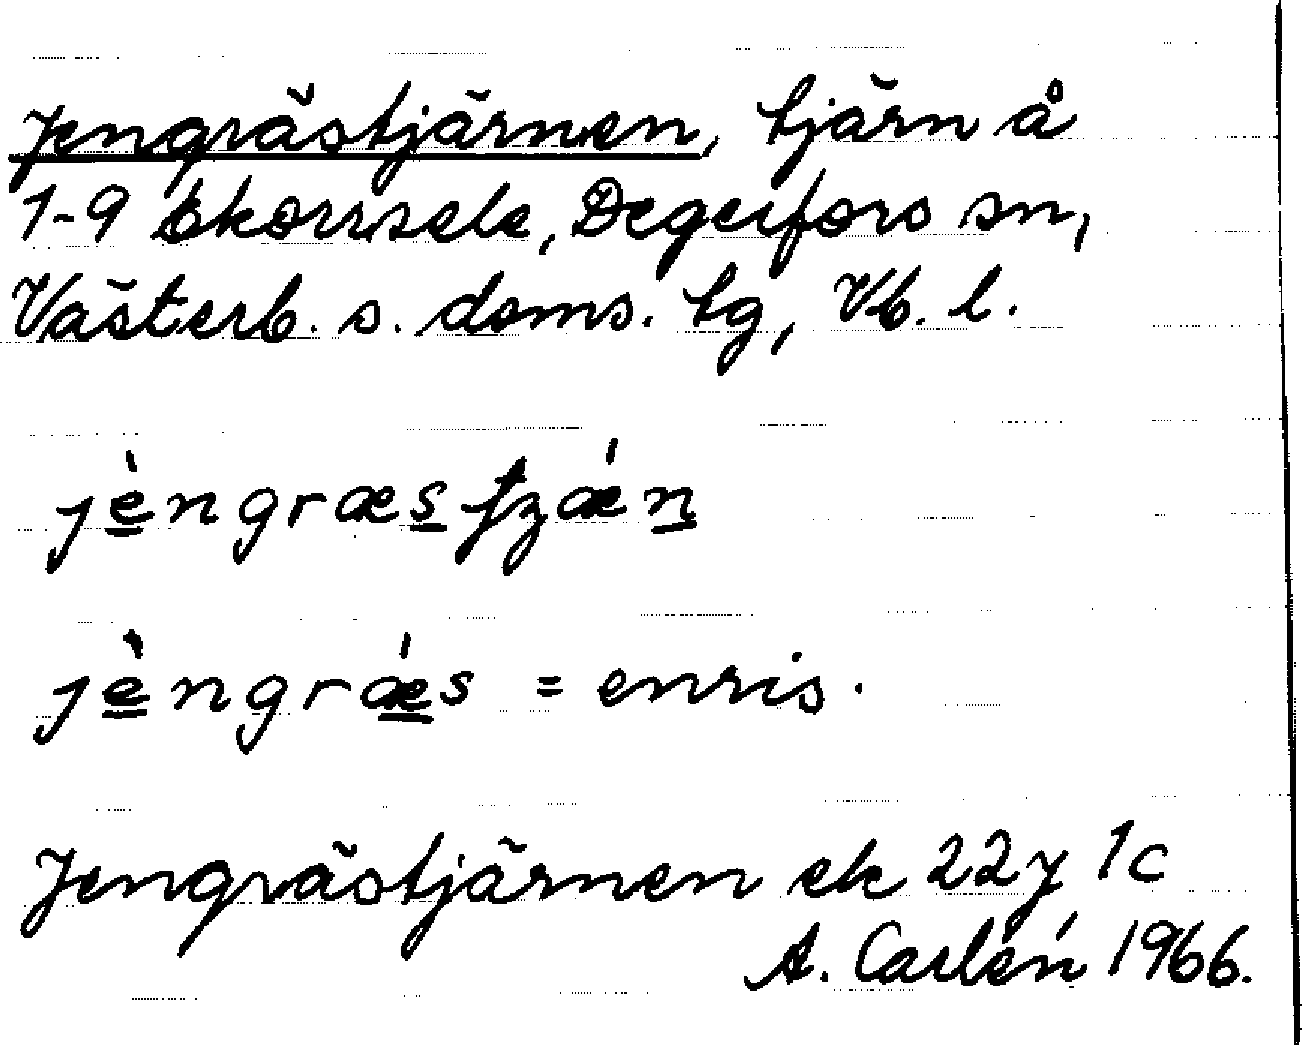 Jengrästjärnen, tjärn å
1-9 Ekorrsele, Degerfors sn,
Västerb. s. doms. tg, Vb. l.
jèngræs tʒǽn
jèngrǽs = enris.
Jengrästjärnen ek 22 J 1c
A. Carlén 1966.